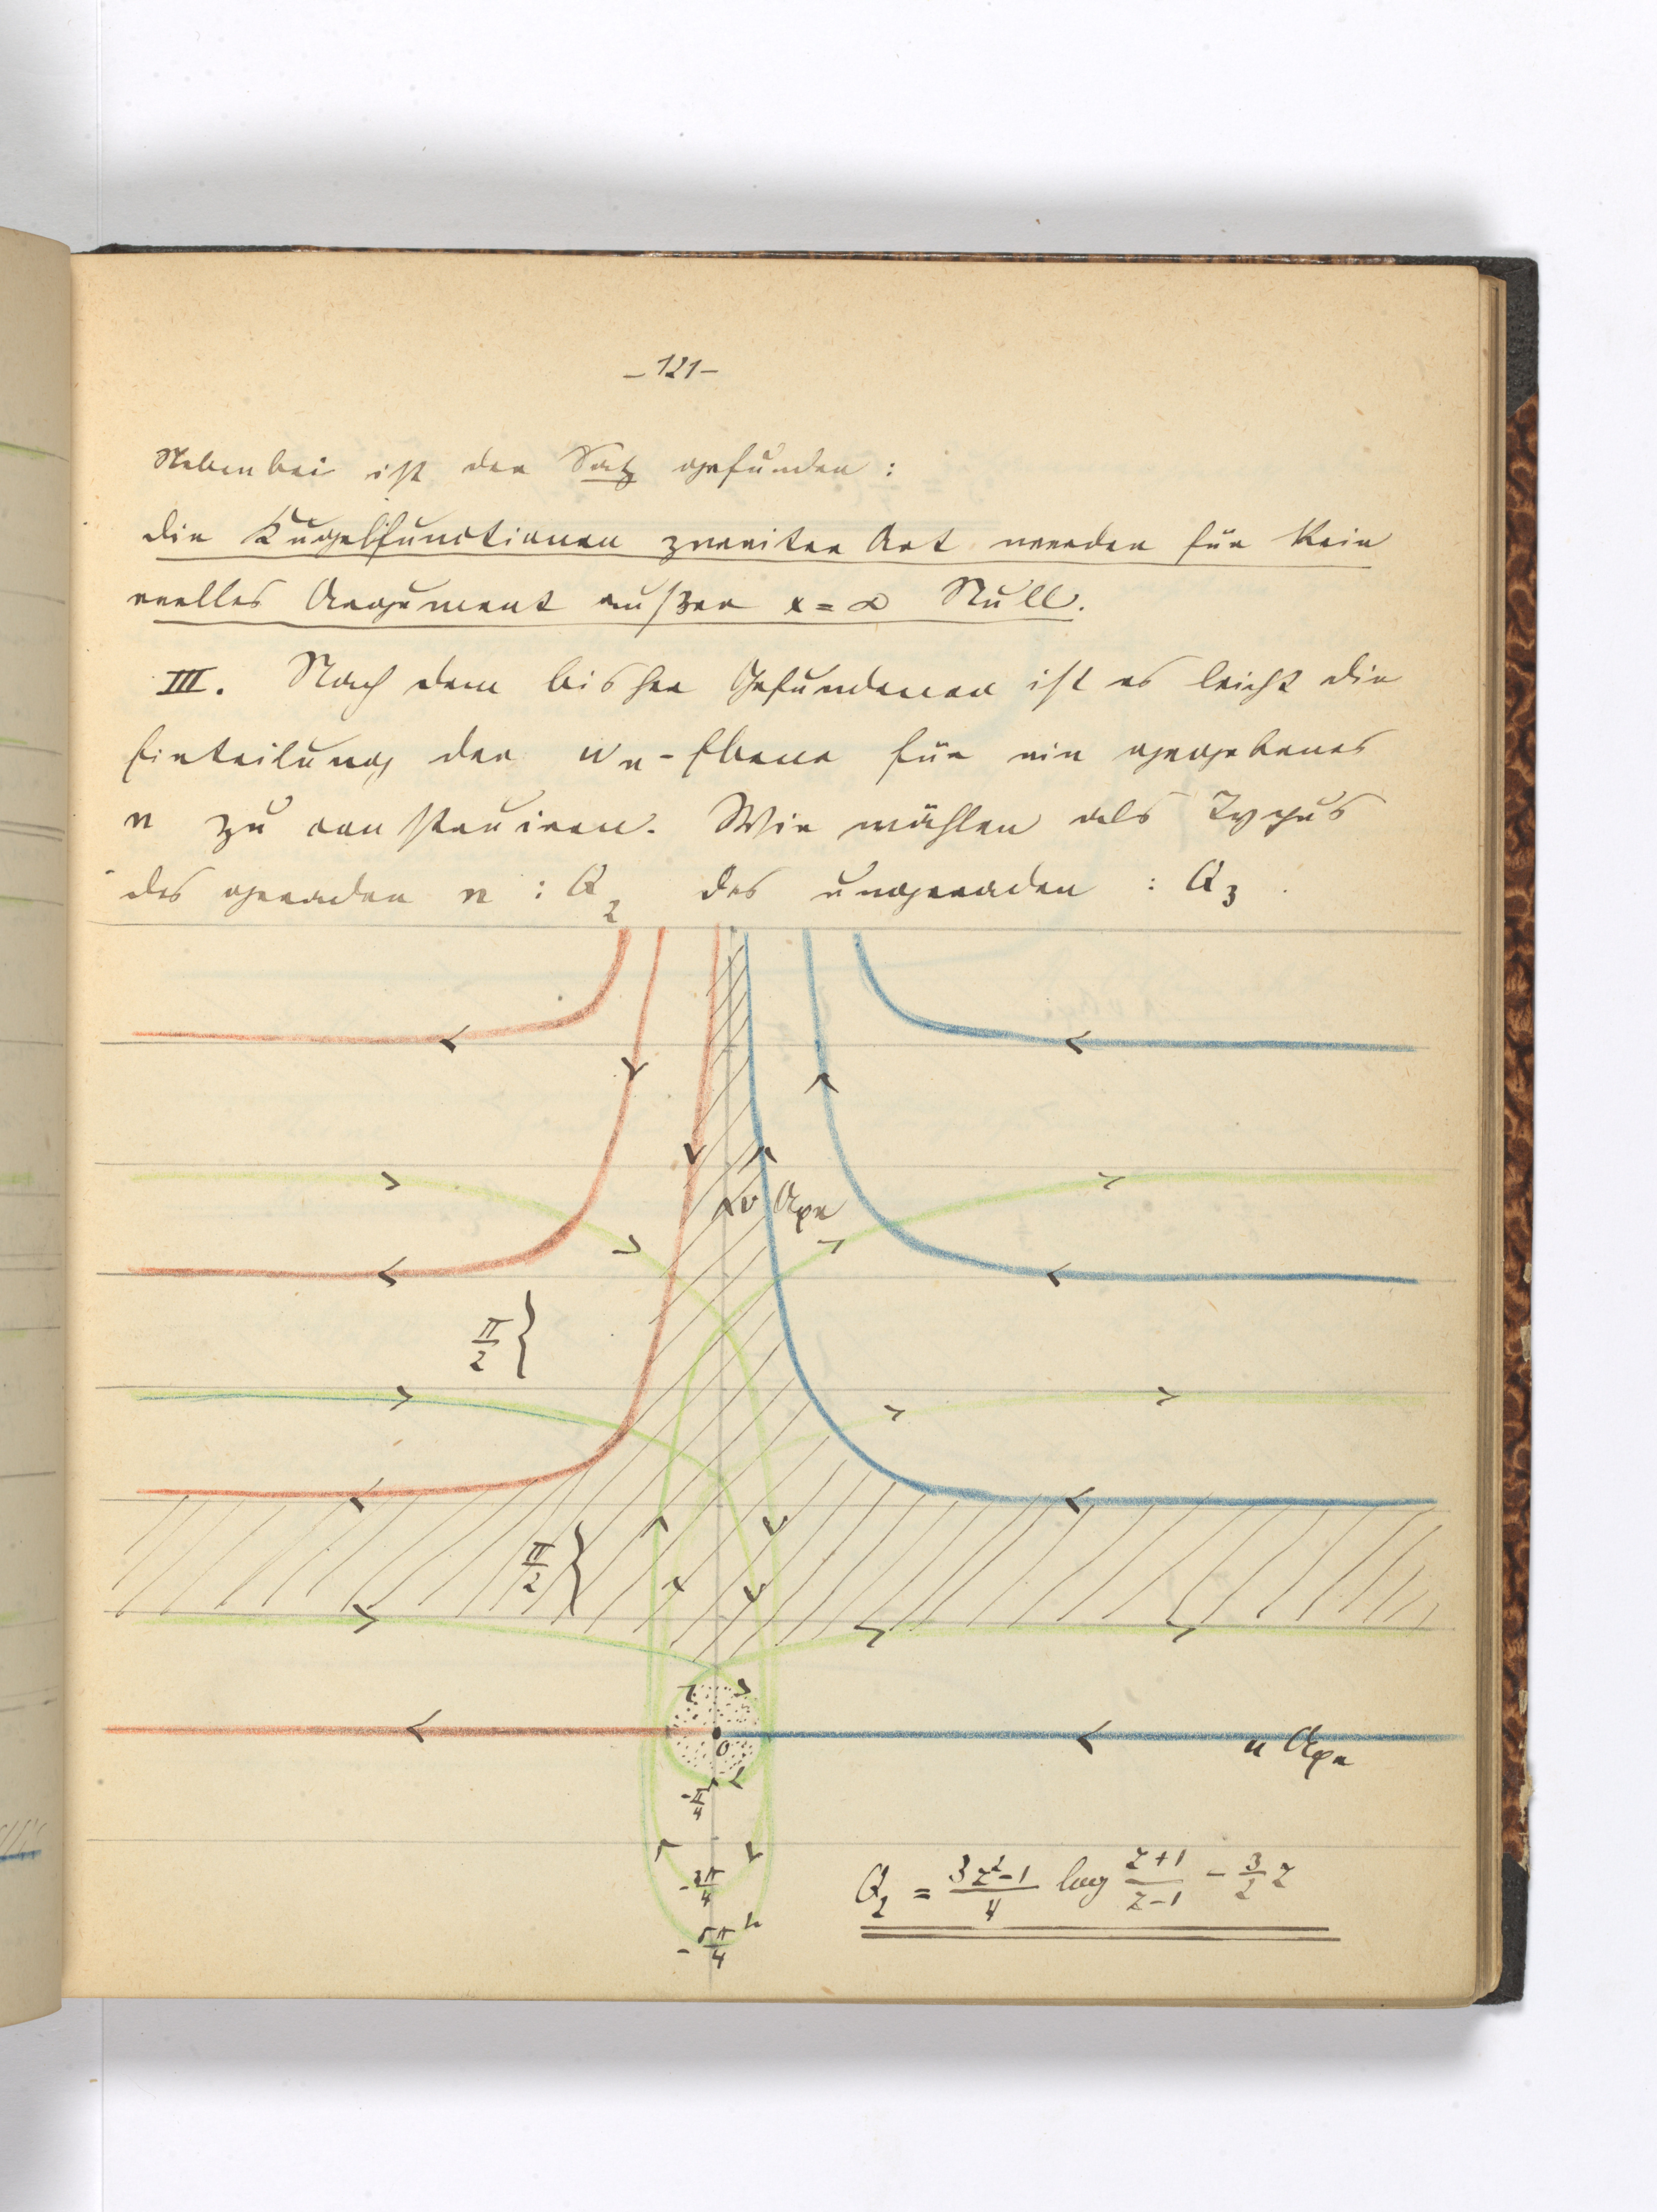 – 121 –
Nebenbei ist der Satz gefunden:
die Kugelfunctionen zweiter Art werden für kein
reelles Argument außer x = ∞ Null.
III. Nach dem bisher Gefundenen ist es leicht die
Einteilung der wₙ-Ebene für ein gegebenes
n zu construiren. Wir wählen als Typus
des geraden n : Q₂ des ungeraden : Q₃ .
v Axe
π/2 {
π/2 {
0
u Axe
-π/4
-3π/4
-5π/4
Q₂ = (3z²-1)/4 log (z+1)/(z-1) - 3/2 z